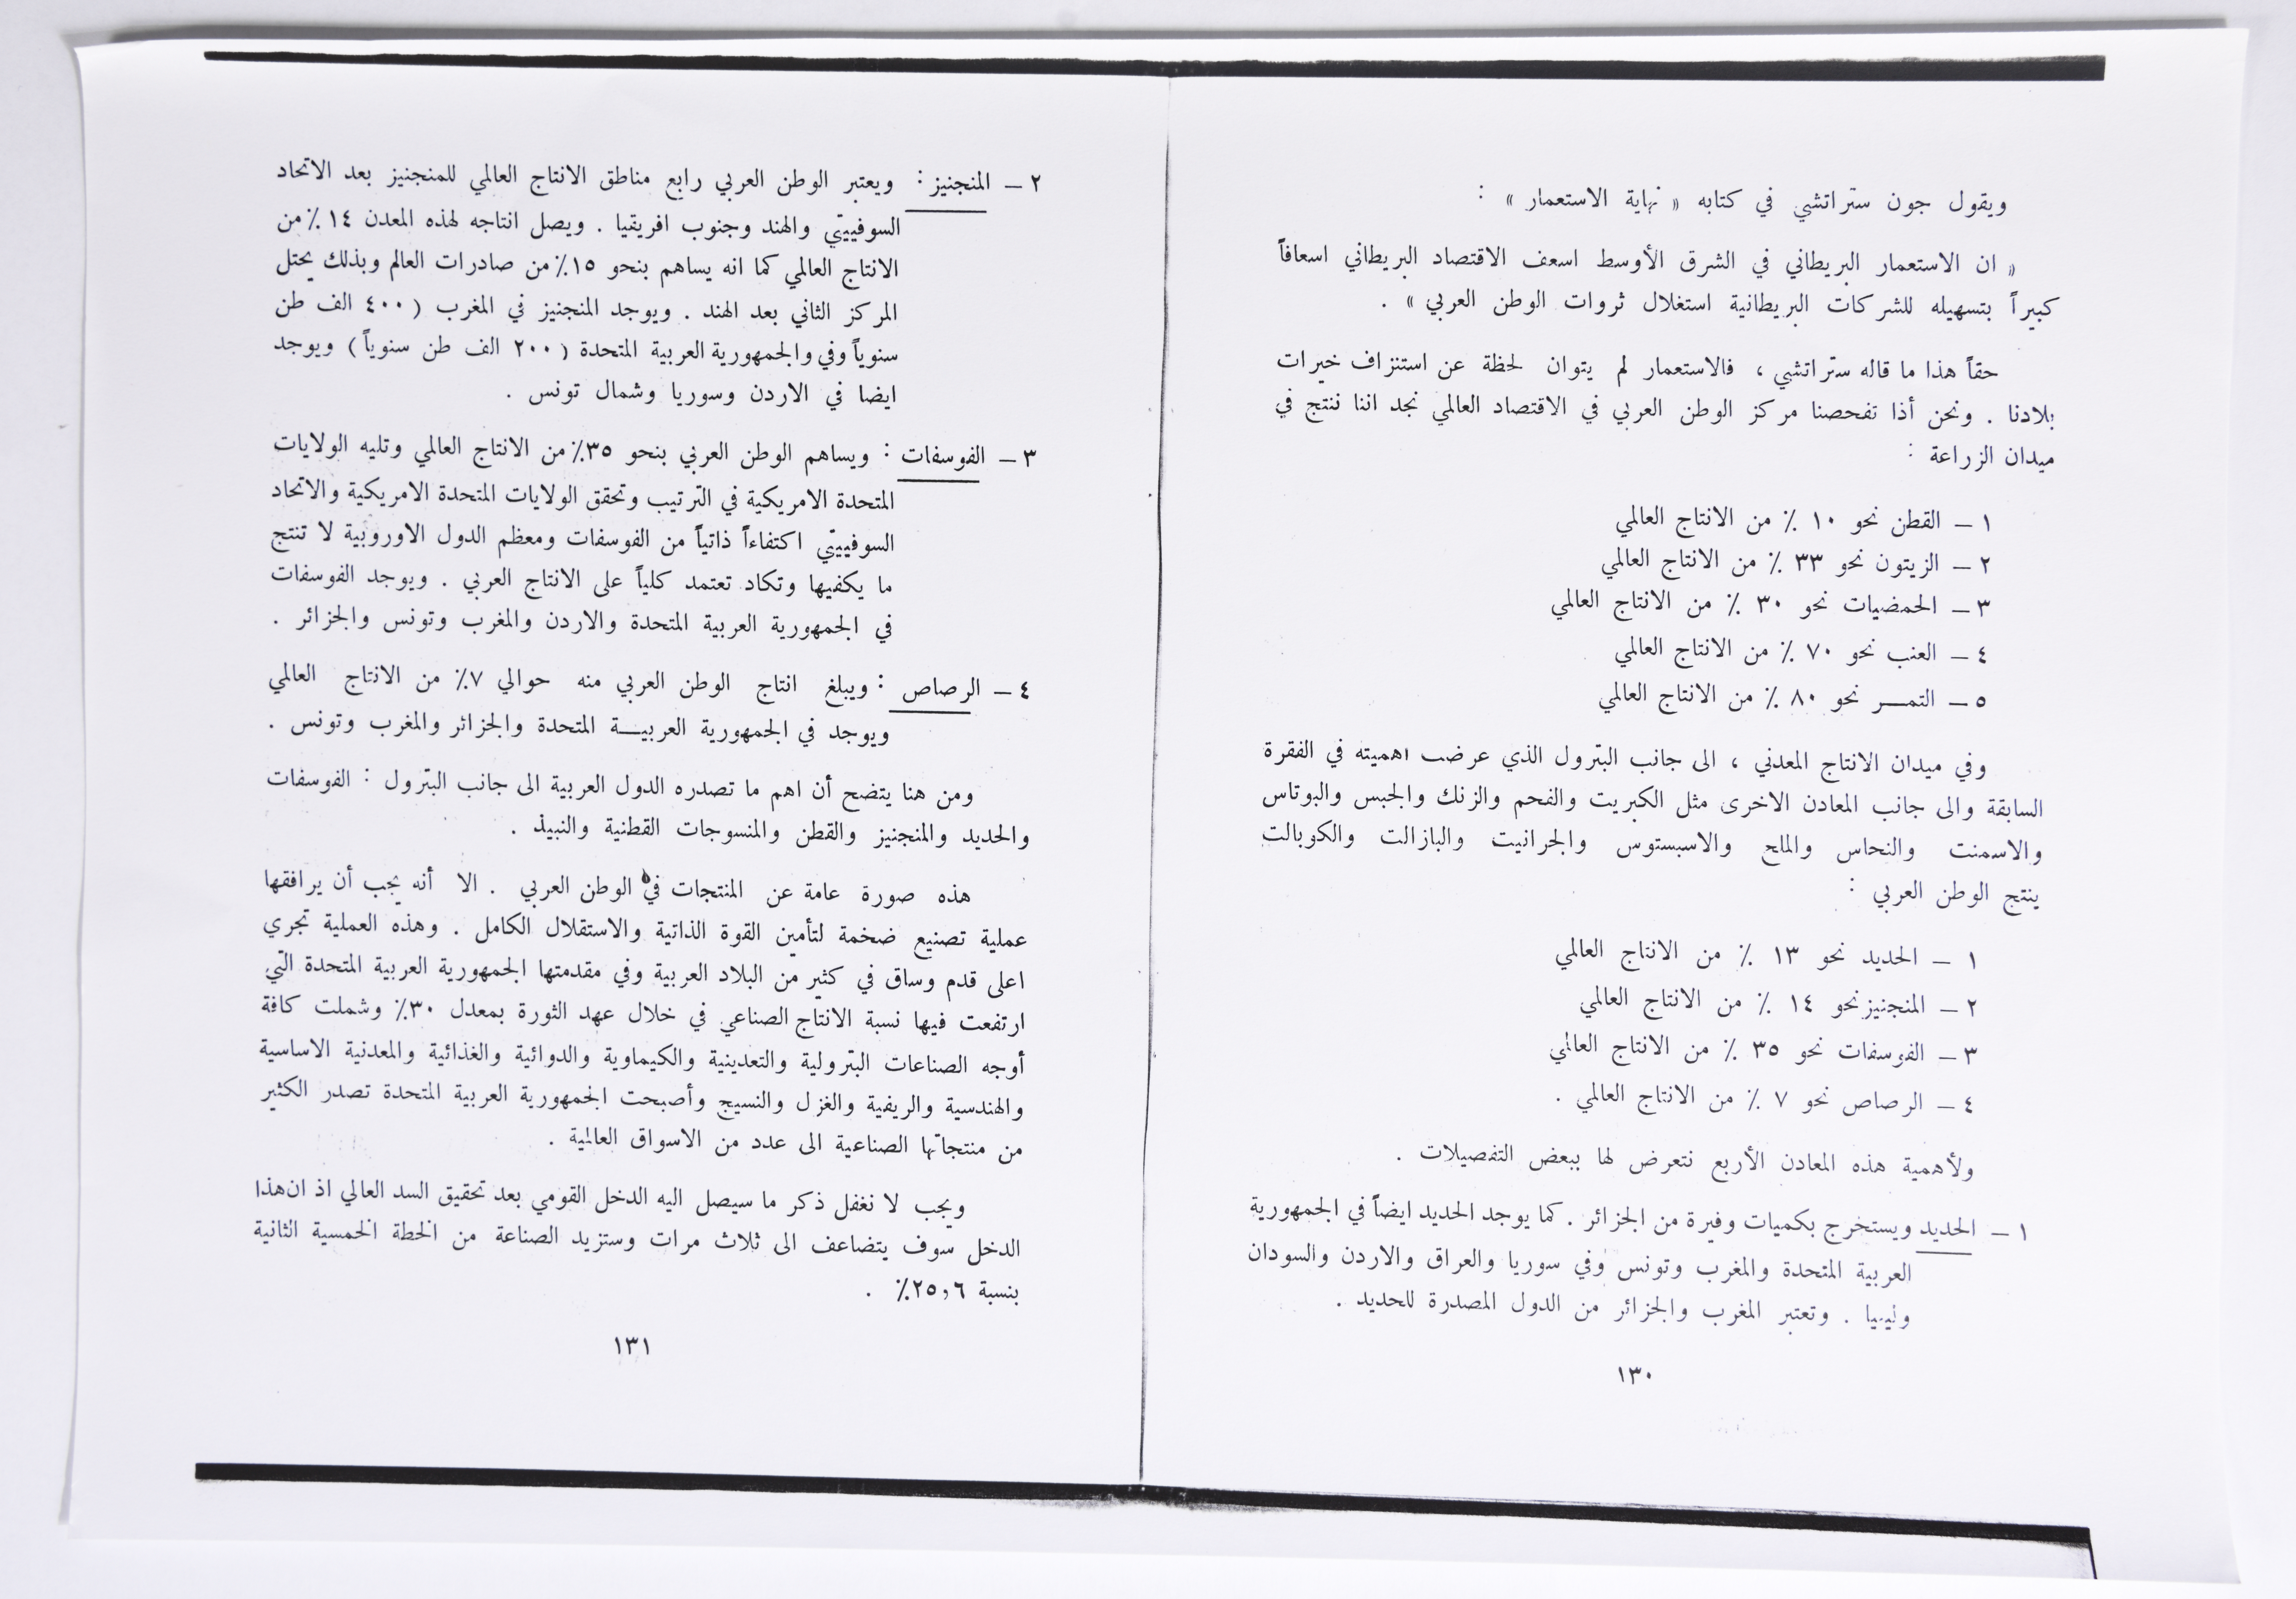 ويقول جون ستراتشي في كتابه « نهاية الاستعمار » :
« ان الاستعمار البريطاني في الشرق الأوسط اسعف الاقتصاد البريطاني اسعافاً
كبيراً بتسهيله للشركات البريطانية استغلال ثروات الوطن العربي » .
حقاً هذا ما قاله ستراتشي ، فالاستعمار لم يتوان لحظة عن استنزاف خيرات
بلادنا . ونحن أذا تفحصنا مركز الوطن العربي في الاقتصاد العالمي نجد اننا ننتج في
ميدان الزراعة :
١ – القطن نحو ١٠ ٪ من الانتاج العالمي
٢ – الزيتون نحو ٣٣ ٪ من الانتاج العالمي
٣ – الحمضيات نحو ٣٠ ٪ من الانتاج العالمي
٤ – العنب نحو ٧٠ ٪ من الانتاج العالمي
٥ – التمـــر نحو ٨٠ ٪ من الانتاج العالمي
وفي ميدان الانتاج المعدني ، الى جانب البترول الذي عرضت اهميته في الفقرة
السابقة والى جانب المعادن الاخرى مثل الكبريت والفحم والزنك والجبس والبوتاس
والاسمنت والنحاس والملح والاسبستوس والجرانيت والبازالت والكوبالت
ينتج الوطن العربي :
١ – الحديد نحو ١٣ ٪ من الانتاج العالمي
٢ – المنجنيز نحو ١٤ ٪ من الانتاج العالمي
٣ – الفوسفات نحو ٣٥ ٪ من الانتاج العالمي
٤ – الرصاص نحو ٧ ٪ من الانتاج العالمي .
ولأهمية هذه المعادن الأربع نتعرض لها ببعض التفصيلات .
١ – الحديد ويستخرج بكميات وفيرة من الجزائر . كما يوجد الحديد ايضاً في الجمهورية
العربية المتحدة والمغرب وتونس وفي سوريا والعراق والاردن والسودان
وليبيا . وتعتبر المغرب والجزائر من الدول المصدرة للحديد .
١٣٠
٢ – المنجنيز : ويعتبر الوطن العربي رابع مناطق الانتاج العالمي للمنجنيز بعد الاتحاد
السوفييتي والهند وجنوب افريقيا . ويصل انتاجه لهذه المعدن ١٤ ٪ من
الانتاج العالمي كما انه يساهم بنحو ١٥٪ من صادرات العالم وبذلك يحتل
المركز الثاني بعد الهند . ويوجد المنجنيز في المغرب ( ٤٠٠ الف طن
سنوياً وفي والجمهورية العربية المتحدة ( ٢٠٠ الف طن سنوياً ) ويوجد
ايضا في الاردن وسوريا وشمال تونس .
٣ – الفوسفات : ويساهم الوطن العربي بنحو ٣٥٪ من الانتاج العالمي وتليه الولايات
المتحدة الامريكية في الترتيب وتحقق الولايات المتحدة الامريكية والاتحاد
السوفييتي اكتفاءاً ذاتياً من الفوسفات ومعظم الدول الاوروبية لا تنتج
ما يكفيها وتكاد تعتمد كلياً على الانتاج العربي . ويوجد الفوسفات
في الجمهورية العربية المتحدة والاردن والمغرب وتونس والجزائر .
٤ – الرصاص : ويبلغ انتاج الوطن العربي منه حوالي ٧٪ من الانتاج العالمي
ويوجد في الجمهورية العربيــة المتحدة والجزائر والمغرب وتونس .
ومن هنا يتضح أن اهم ما تصدره الدول العربية الى جانب البترول : الفوسفات
والحديد والمنجنيز والقطن والمنسوجات القطنية والنبيذ .
هذه صورة عامة عن المنتجات في الوطن العربي . الا أنه يجب أن يرافقها
عملية تصنيع ضخمة لتأمين القوة الذاتية والاستقلال الكامل . وهذه العملية تجري
اعلى قدم وساق في كثير من البلاد العربية وفي مقدمتها الجمهورية العربية المتحدة التي
ارتفعت فيها نسبة الانتاج الصناعي في خلال عهد الثورة بمعدل ٣٠٪ وشملت كافة
أوجه الصناعات البترولية والتعدينية والكيماوية والدوائية والغذائية والمعدنية الاساسية
والهندسية والريفية والغزل والنسيج وأصبحت الجمهورية العربية المتحدة تصدر الكثير
من منتجاتها الصناعية الى عدد من الاسواق العالمية .
ويجب لا نغفل ذكر ما سيصل اليه الدخل القومي بعد تحقيق السد العالي اذ ان هذا
الدخل سوف يتضاعف الى ثلاث مرات وستزيد الصناعة من الخطة الخمسية الثانية
بنسبة ٢٥,٦٪ .
١٣١